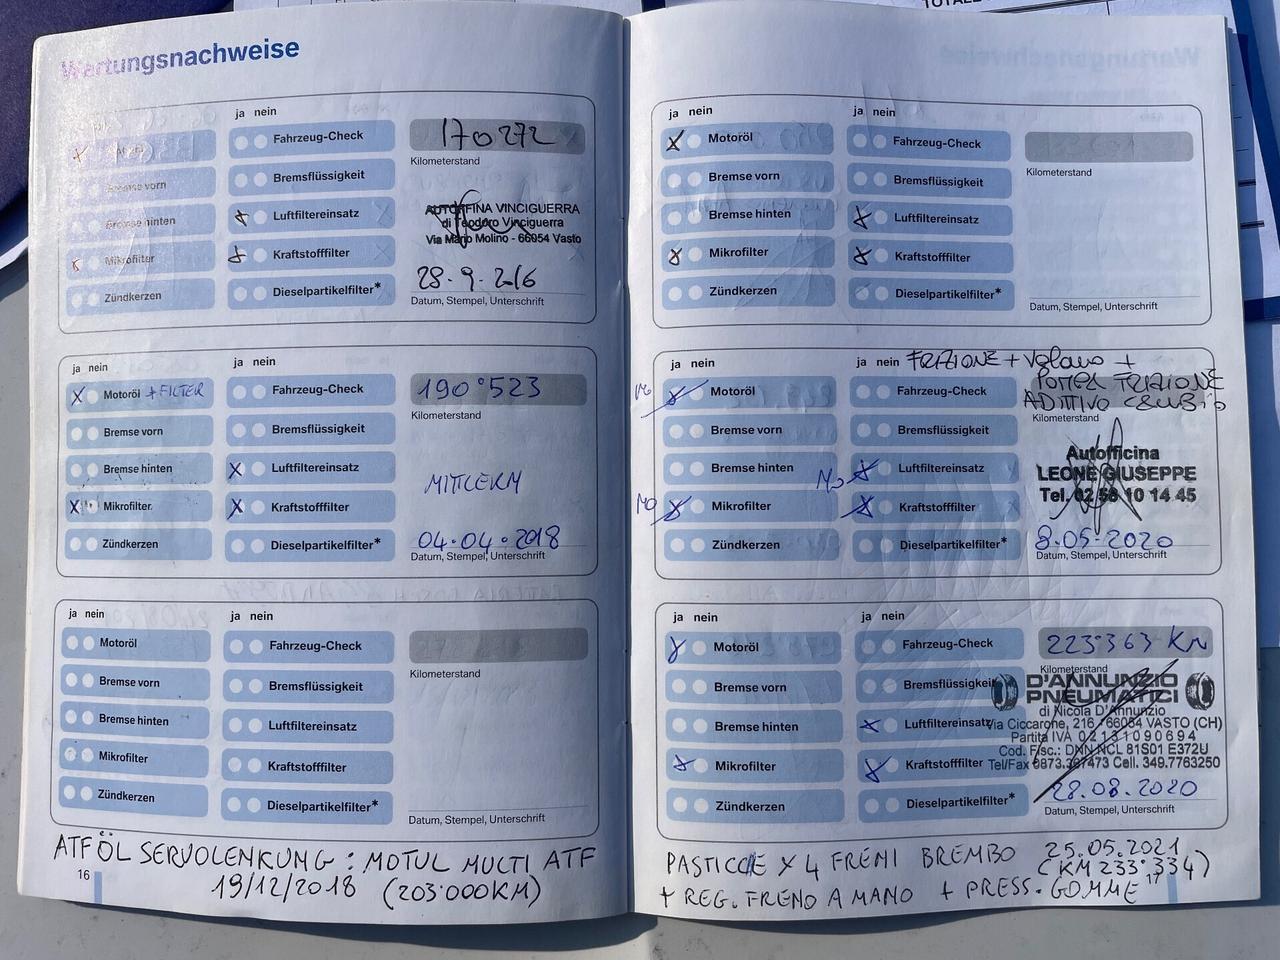 TOTALE
Wartungsnachweise
ja nein
Fahrzeug-Check
170272
Bremse vorn
Bremsflüssigkeit
Kilometerstand
Bremse hinten
Luftfiltereinsatz
AUTOFFINA VINCIGUERRA
di Teodoro Vinciguerra
Via Mario Molino - 66054 Vasto
Mikrofilter
Kraftstofffilter
28.9.216
Zündkerzen
Dieselpartikelfilter*
Datum, Stempel, Unterschrift
ja nein
ja nein
Motoröl + FILTER
Fahrzeug-Check
190°523
Kilometerstand
Bremse vorn
Bremsflüssigkeit
Bremse hinten
Luftfiltereinsatz
Mikrofilter
Kraftstofffilter
04.04.2018
Zündkerzen
Dieselpartikelfilter*
Datum, Stempel, Unterschrift
ja nein
ja nein
Motoröl
Fahrzeug-Check
Kilometerstand
Bremse vorn
Bremsflüssigkeit
Bremse hinten
Luftfiltereinsatz
Mikrofilter
Kraftstofffilter
Zündkerzen
Dieselpartikelfilter*
Datum, Stempel, Unterschrift
ATF ÖL SERVOLENKUNG : MOTUL MULTI ATF
19/12/2018 (203°000KM)
16
ja nein
ja nein
Motoröl
Fahrzeug-Check
Kilometerstand
Bremse vorn
Bremsflüssigkeit
Bremse hinten
Luftfiltereinsatz
Mikrofilter
Kraftstofffilter
Zündkerzen
Dieselpartikelfilter*
Datum, Stempel, Unterschrift
ja nein
ja nein
FRIZIONE + Volano +
No
Motoröl
Fahrzeug-Check
POMPA FRIZIONE
ADITTIVO CAMBIO
Kilometerstand
Bremse vorn
Bremsflüssigkeit
Autofficina
LEONE GIUSEPPE
Tel. 02 58 10 14 45
Bremse hinten
No
Luftfiltereinsatz
NO
Mikrofilter
Kraftstofffilter
8.05.2020
Zündkerzen
Dieselpartikelfilter*
Datum, Stempel, Unterschrift
ja nein
ja nein
Motoröl
Fahrzeug-Check
223°363 KM
Kilometerstand
Bremse vorn
Bremsflüssigkeit
D'ANNUNZIO
PNEUMATICI
di Nicola D'Annunzio
Bremse hinten
Luftfiltereinsatz
Via Ciccarone, 216 - 66054 VASTO (CH)
Partita IVA 02131090694
Cod. Fisc.: DNN NCL 81S01 E372U
Mikrofilter
Kraftstofffilter
Tel/Fax 0873.367473 Cell. 349.7763250
28.08.2020
Zündkerzen
Dieselpartikelfilter*
Datum, Stempel, Unterschrift
PASTICCE X 4 FRENI BREMBO 25.05.2021
(KM 233°334)
+ REG. FRENO A MANO + PRESS. GOMME
17